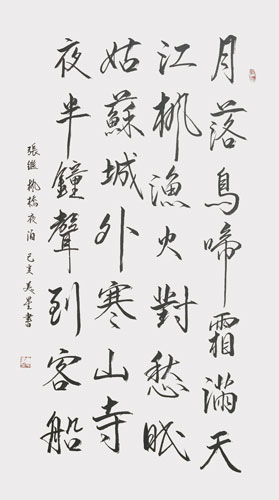 月落烏啼霜滿天
江楓漁火對愁眠
姑蘇城外寒山寺
夜半鐘聲到客船
張繼楓橋夜泊 己亥 書